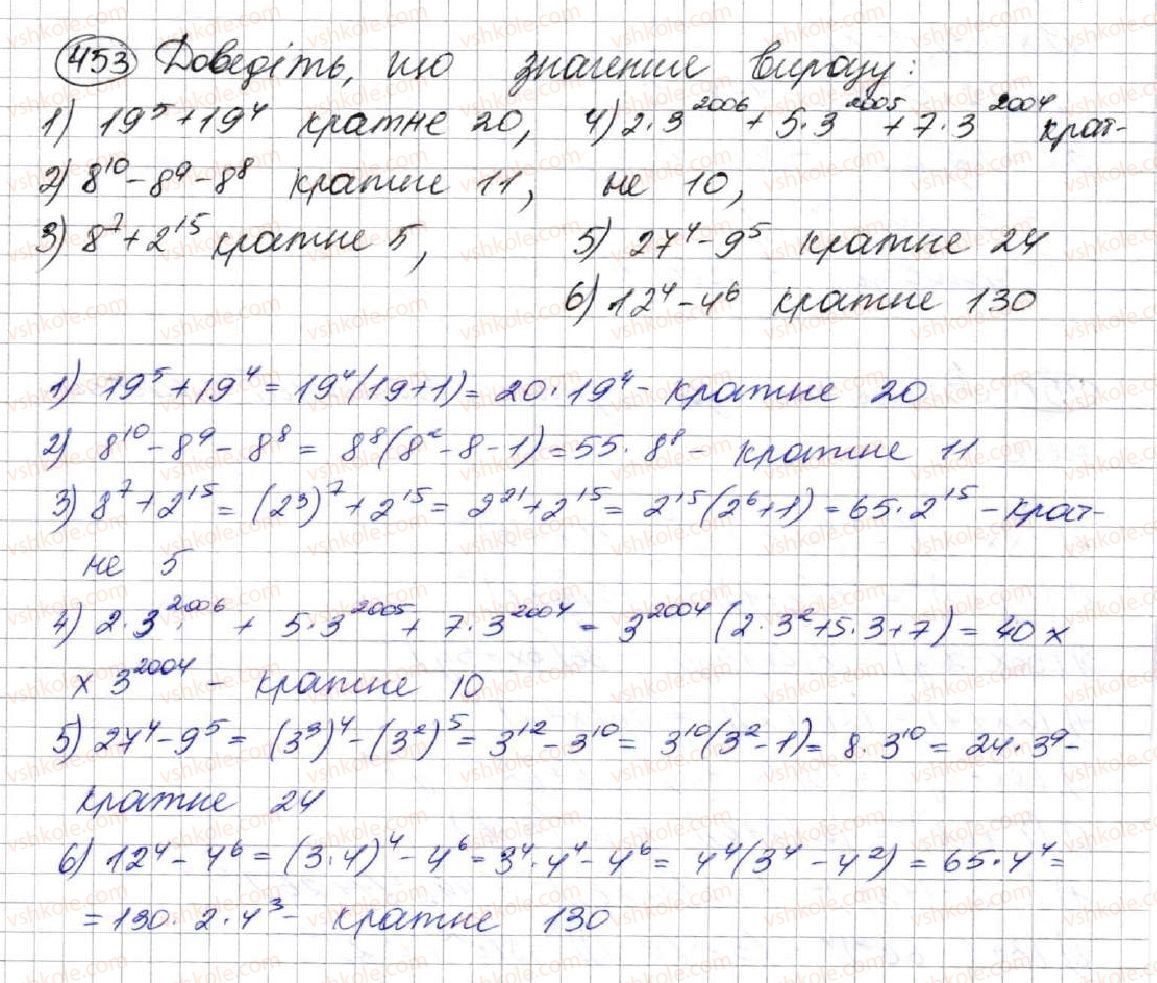 453 Доведіть, що значение виразу:
1) 19⁵ + 19⁴ кратне 20,
2) 8¹⁰ - 8⁹ - 8⁸ кратне 11,
3) 8⁷ + 2¹⁵ кратне 5,
4) 2·3²⁰⁰⁶ + 5·3²⁰⁰⁵ + 7·3²⁰⁰⁴ крат-
не 10,
5) 27⁴ - 9⁵ кратне 24
6) 12⁴ - 4⁶ кратне 130
1) 19⁵ + 19⁴ = 19⁴(19+1) = 20·19⁴ - кратне 20
2) 8¹⁰ - 8⁹ - 8⁸ = 8⁸(8² - 8 - 1) = 55·8⁸ - кратне 11
3) 8⁷ + 2¹⁵ = (2³)⁷ + 2¹⁵ = 2²¹ + 2¹⁵ = 2¹⁵(2⁶+1) = 65·2¹⁵ - крат-
не 5
4) 2·3²⁰⁰⁶ + 5·3²⁰⁰⁵ + 7·3²⁰⁰⁴ = 3²⁰⁰⁴(2·3²+5·3+7) = 40 ×
× 3²⁰⁰⁴ - кратне 10
5) 27⁴ - 9⁵ = (3³)⁴ - (3²)⁵ = 3¹² - 3¹⁰ = 3¹⁰(3² - 1) = 8·3¹⁰ = 24·3⁹ -
кратне 24
6) 12⁴ - 4⁶ = (3·4)⁴ - 4⁶ = 3⁴·4⁴ - 4⁶ = 4⁴(3⁴ - 4²) = 65·4⁴ =
= 130·2·4³ - кратне 130
vshkole.com